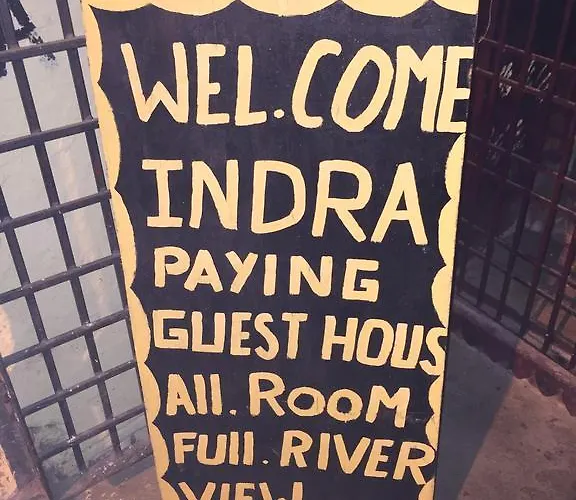 WEL.COME
INDRA
PAYING
GUEST HOUS
All. ROOM
FUll. RIVER
VIEW